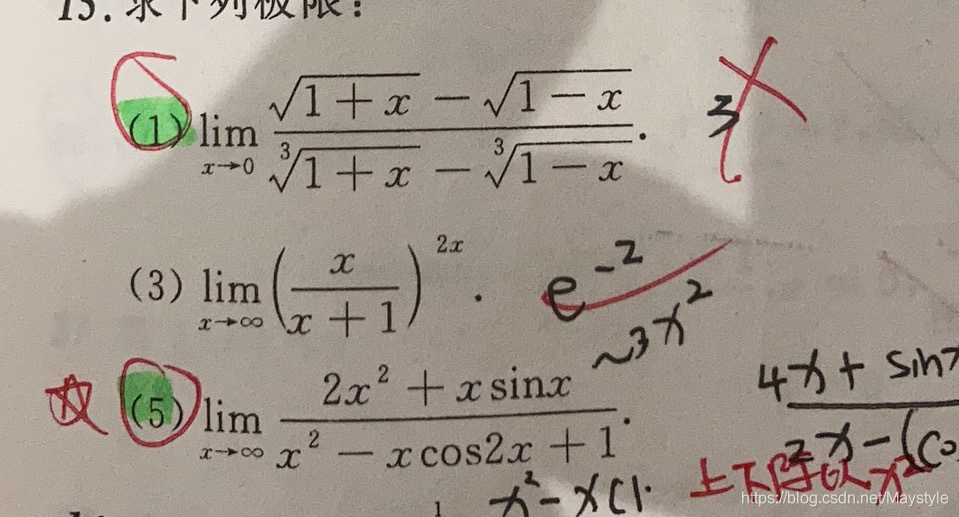 15. 求下列极限:
(1) lim x→0 (√(1+x) − √(1−x)) / (∛(1+x) − ∛(1−x)).
3
(3) lim x→∞ (x/(x+1))^{2x}. e^{-2}
~3x²
(5) lim x→∞ (2x² + x sinx) / (x² − x cos2x + 1).
4x + sin
2x − (co
上下除以x²
x² − x(1.
https://blog.csdn.net/Maystyle